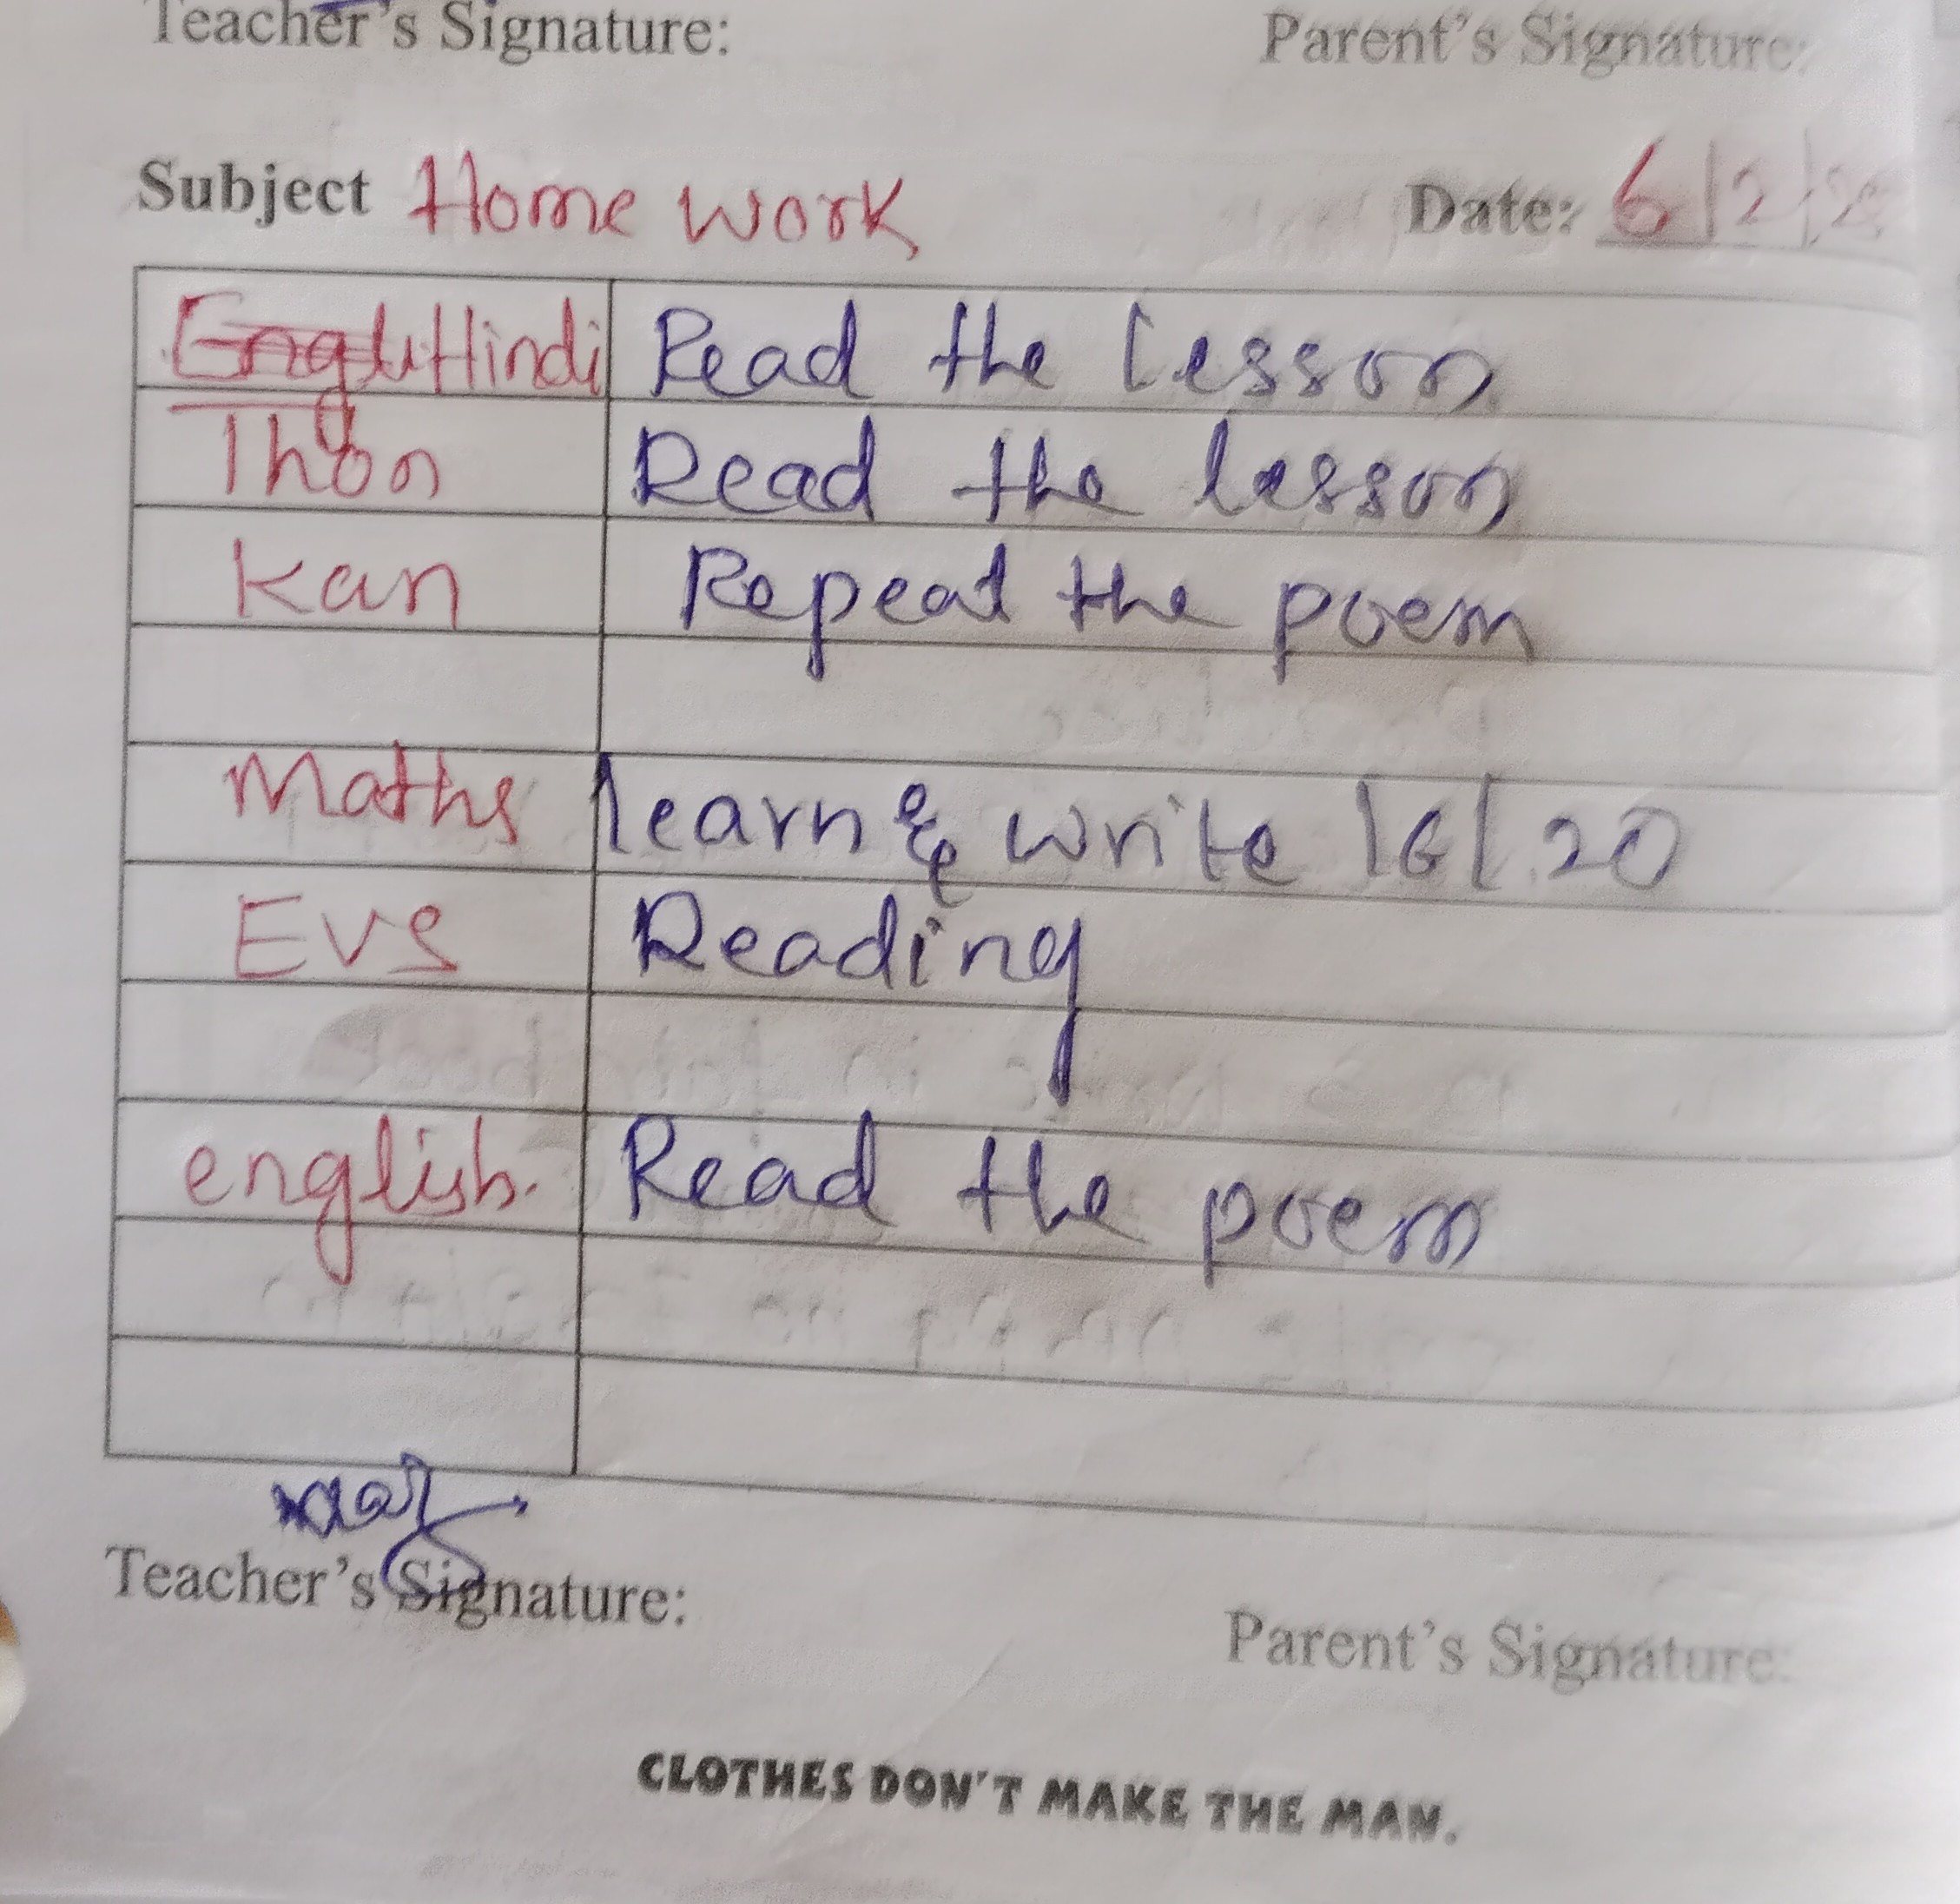 Teacher's Signature: Parent's Signature:
Subject Home work Date: 6/2/
Hindi Read the Lesson
Thon Read the lesson
Kan Repeat the poem
Maths learn & write 16/20
EVS Reading
english. Read the poem
Teacher's Signature:
Parent's Signature:
CLOTHES DON'T MAKE THE MAN.